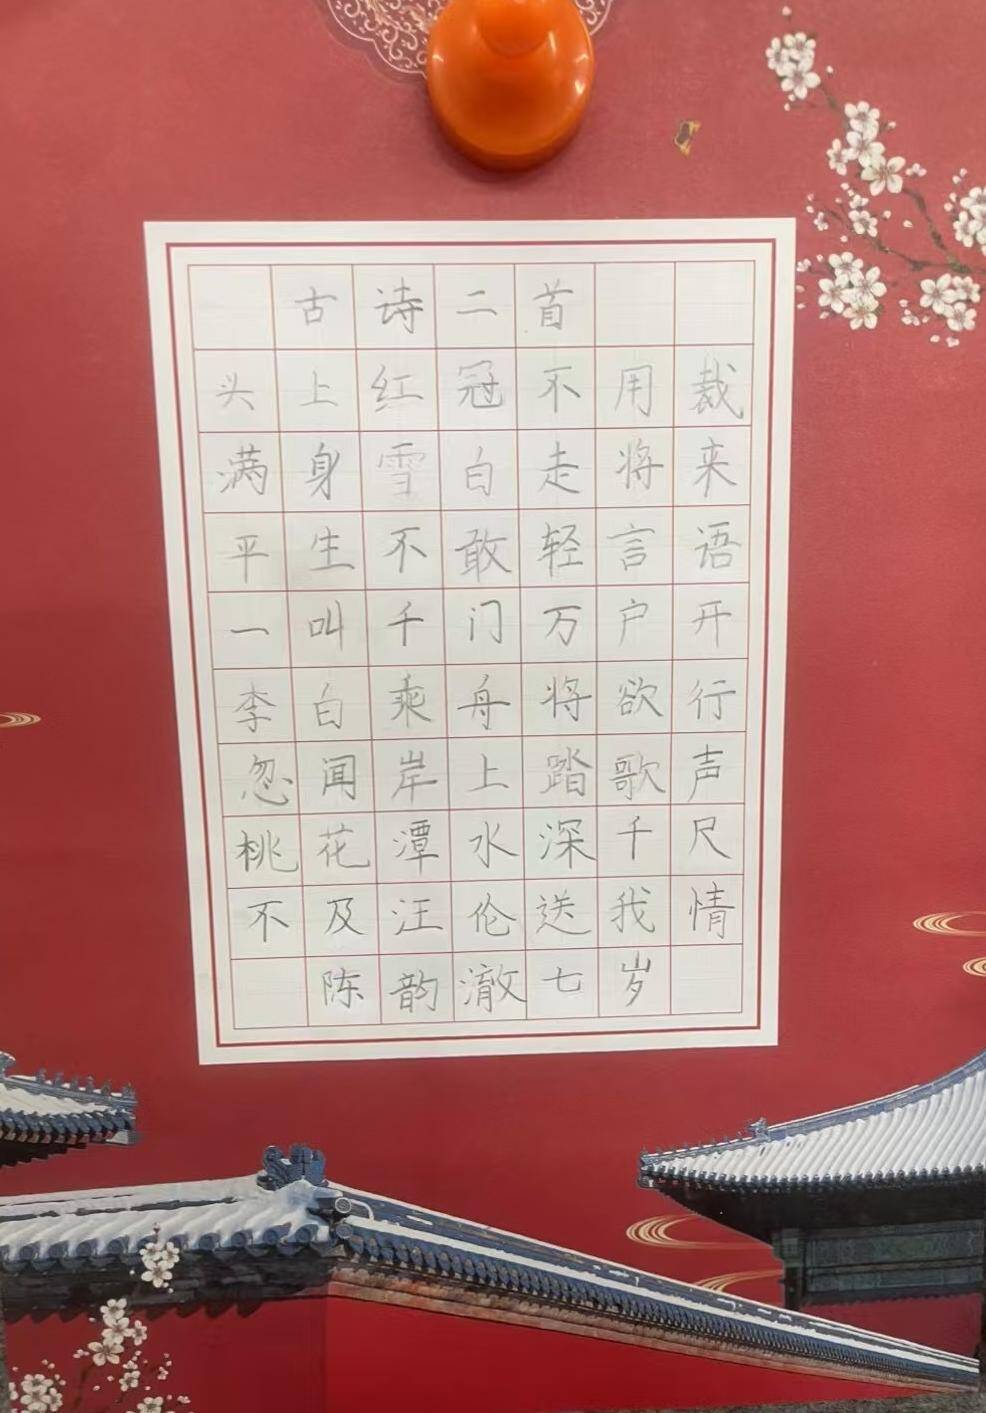 古诗二首
头上红冠不用裁
满身雪白走将来
平生不敢轻言语
一叫千门万户开
李白乘舟将欲行
忽闻岸上踏歌声
桃花潭水深千尺
不及汪伦送我情
陈韵澈七岁